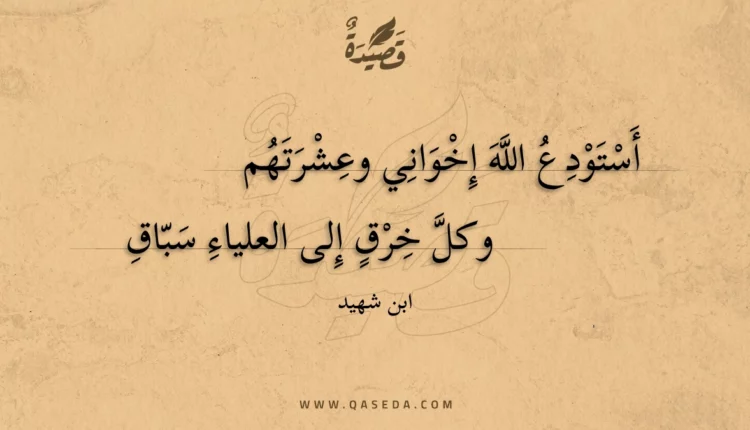 قَصِيدَةٌ
أَسْتَوْدِعُ اللَّهَ إِخْوَانِي وعِشْرَتَهُم
وكلَّ خِرْقٍ إِلى العلياءِ سَبّاقِ
ابن شهيد
WWW.QASEDA.COM